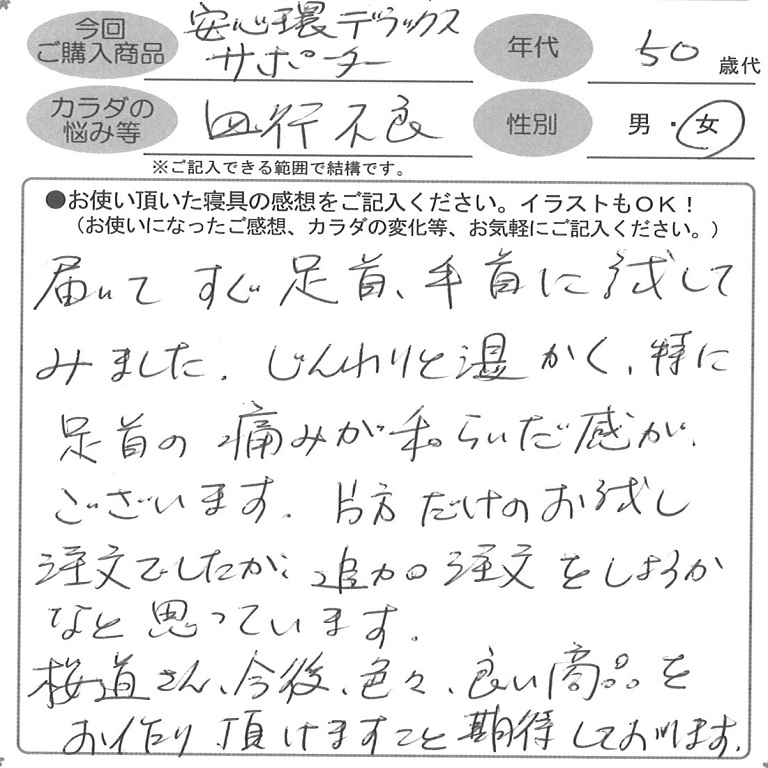 今回
ご購入商品
安心環デラックス
サポーター
年代
50 歳代
カラダの
悩み等
血行不良
性別
男・女
※ご記入できる範囲で結構です。
●お使い頂いた寝具の感想をご記入ください。イラストもOK！
（お使いになったご感想、カラダの変化等、お気軽にご記入ください。）
届いてすぐ足首、手首に試して
みました。じんわりと温かく、特に
足首の痛みが和らいだ感が、
ございます。片方だけのお試し
注文でしたが、追加注文をしようか
なと思っています。
桜道さん、今後、色々、良い商品を
お作り頂けますこと期待しております。